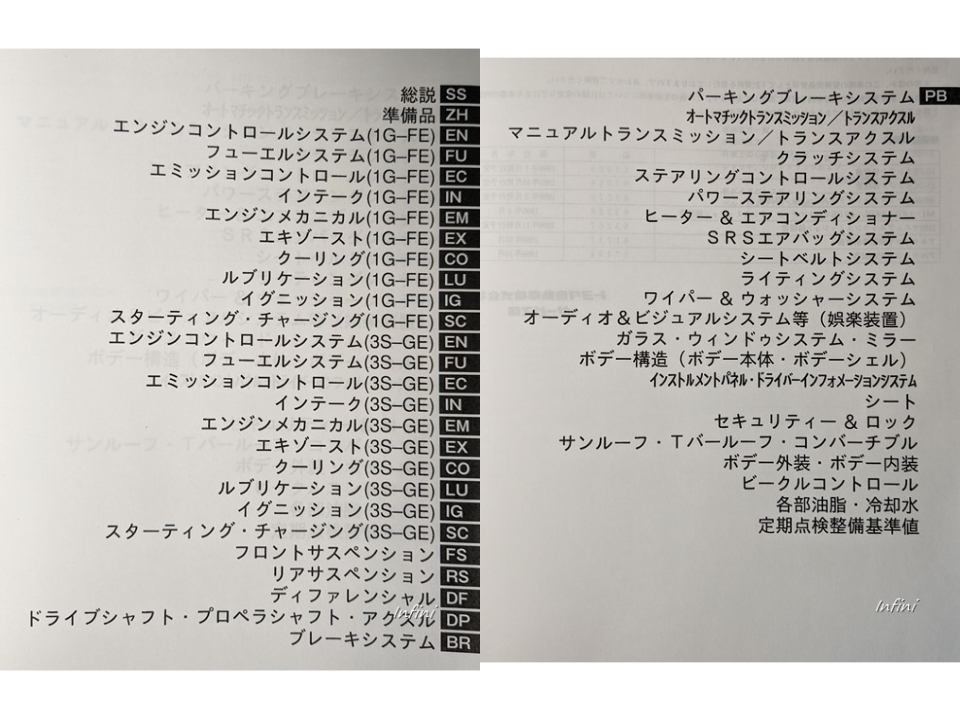 総説 SS
準備品 ZH
エンジンコントロールシステム(1G–FE) EN
フューエルシステム(1G–FE) FU
エミッションコントロール(1G–FE) EC
インテーク(1G–FE) IN
エンジンメカニカル(1G–FE) EM
エキゾースト(1G–FE) EX
クーリング(1G–FE) CO
ルブリケーション(1G–FE) LU
イグニッション(1G–FE) IG
スターティング・チャージング(1G–FE) SC
エンジンコントロールシステム(3S–GE) EN
フューエルシステム(3S–GE) FU
エミッションコントロール(3S–GE) EC
インテーク(3S–GE) IN
エンジンメカニカル(3S–GE) EM
エキゾースト(3S–GE) EX
クーリング(3S–GE) CO
ルブリケーション(3S–GE) LU
イグニッション(3S–GE) IG
スターティング・チャージング(3S–GE) SC
フロントサスペンション FS
リアサスペンション RS
ディファレンシャル DF
ドライブシャフト・プロペラシャフト・アクスル DP
ブレーキシステム BR
Infini
パーキングブレーキシステム PB
オートマチックトランスミッション／トランスアクスル
マニュアルトランスミッション／トランスアクスル
クラッチシステム
ステアリングコントロールシステム
パワーステアリングシステム
ヒーター & エアコンディショナー
SRSエアバッグシステム
シートベルトシステム
ライティングシステム
ワイパー & ウォッシャーシステム
オーディオ&ビジュアルシステム等（娯楽装置）
ガラス・ウィンドゥシステム・ミラー
ボデー構造（ボデー本体・ボデーシェル）
インストルメントパネル・ドライバーインフォメーションシステム
シート
セキュリティー & ロック
サンルーフ・Tバールーフ・コンバーチブル
ボデー外装・ボデー内装
ビークルコントロール
各部油脂・冷却水
定期点検整備基準値
Infini